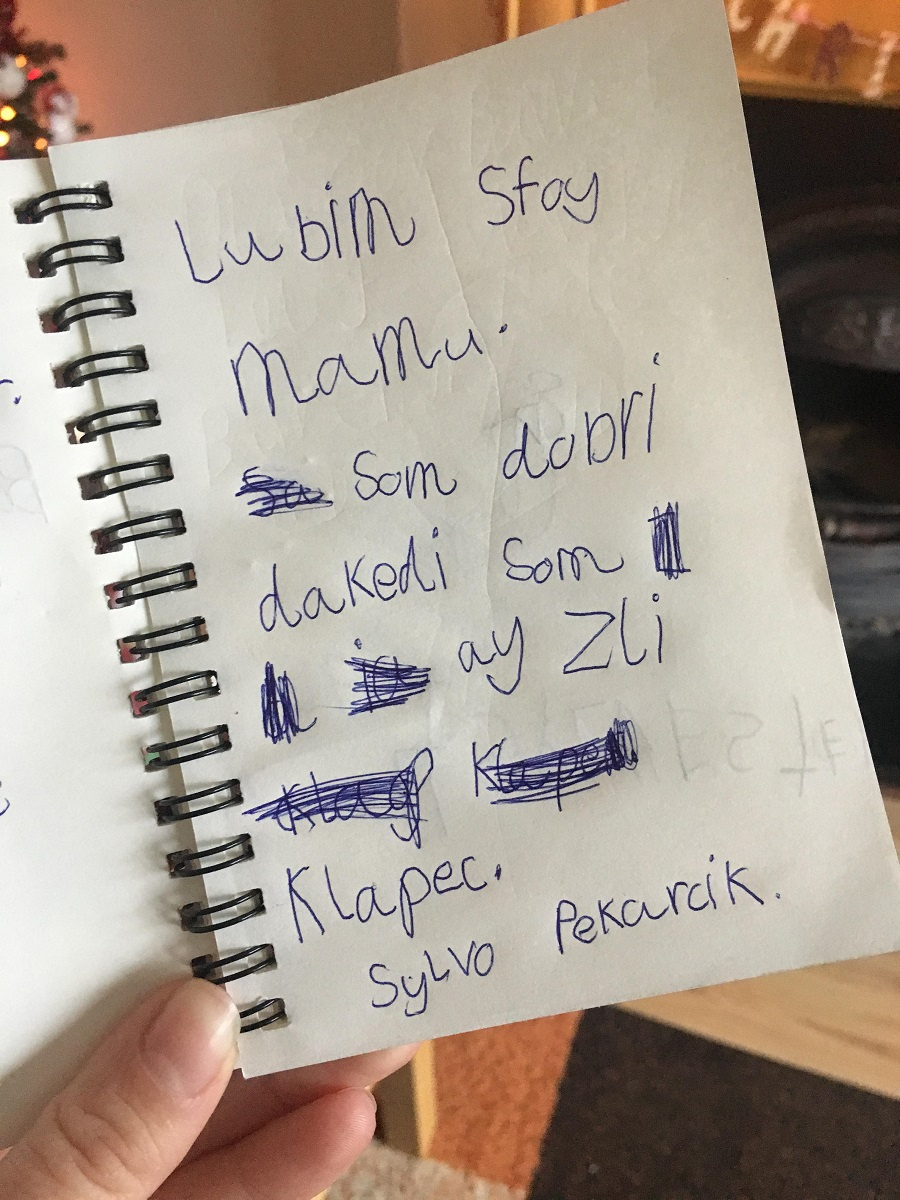 Lubim Stoy
mamu.
Som dobri
dakedi som
ay Zli
Klapec.
Sylvo Pekarcik.